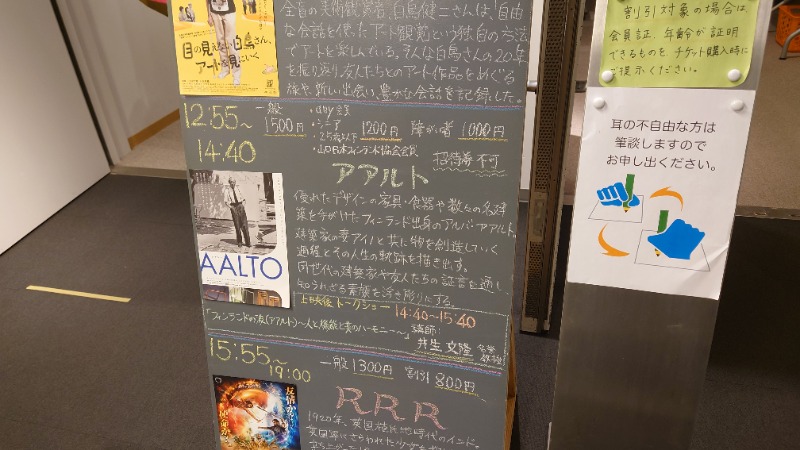 目の見えない白鳥さん、
アートを見にいく
全盲の美術鑑賞者、白鳥健二さんは、「自由
な会話を使ったアート鑑賞」という独自の方法
でアートを楽しんでいる。そんな白鳥さんの20年
を振り返り、友人たちとのアート作品をめぐる
旅や、新しい出会い、豊かな会話を記録した。
12:55〜
14:40
一般
1500円
・any会員
・シニア
・25歳以下
・山口日本フィンランド協会会員
1200円
障がい者 1000円
招待券 不可
アアルト
AALTO
優れたデザインの家具・食器や数々の名建
築を手がけたフィンランド出身のアルバ・アアルト。
建築家の妻アイノと共に物を創造していく
過程とその人生の軌跡を描き出す。
同世代の建築家や友人たちの証言を通し
知られざる素顔を浮き彫りにする。
上映後 トークショー 14:40〜15:40
「フィンランドの波(アアルト)〜人と機能と美のハーモニー〜」 講師:
井生 文隆
15:55〜
19:00
一般 1300円 割引 800円
RRR
友情か?
使命か?
1920年、英国植民地時代のインド。
英国軍にさらわれた少女を
割引対象の場合は
会員証、年齢が証明
できるものを、チケット購入時に
ご提示ください。
耳の不自由な方は
筆談しますので
お申し出ください。